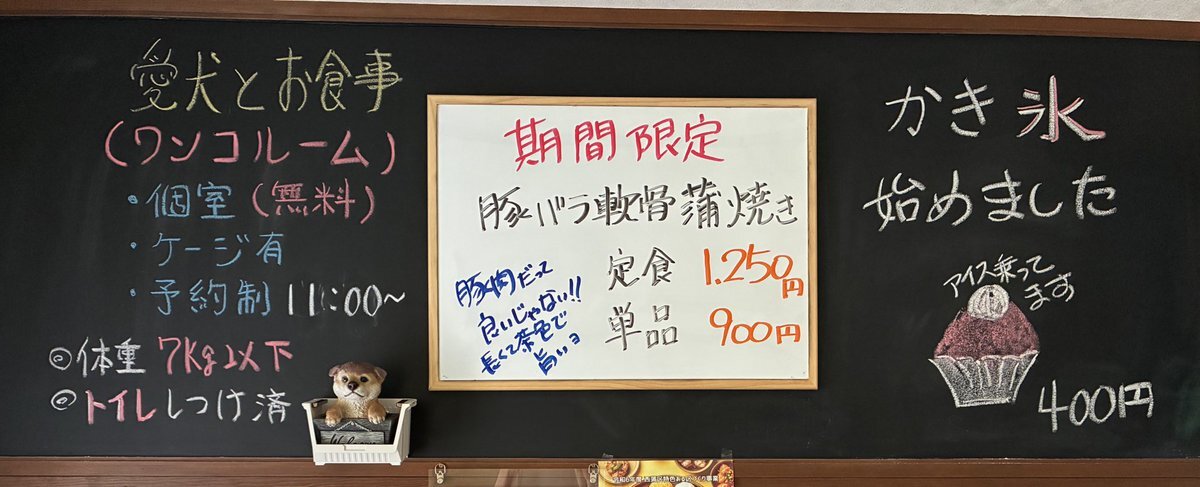 愛犬とお食事
(ワンコルーム)
・個室(無料)
・ケージ有
・予約制 11:00~
◎体重 7Kg以下
◎トイレしつけ済
Welcome
期間限定
豚バラ軟骨蒲焼き
定食 1.250円
単品 900円
豚肉だって
良いじゃない!!
長くて茶色で
旨いョ
かき氷
始めました
アイス乗って
ます
400円